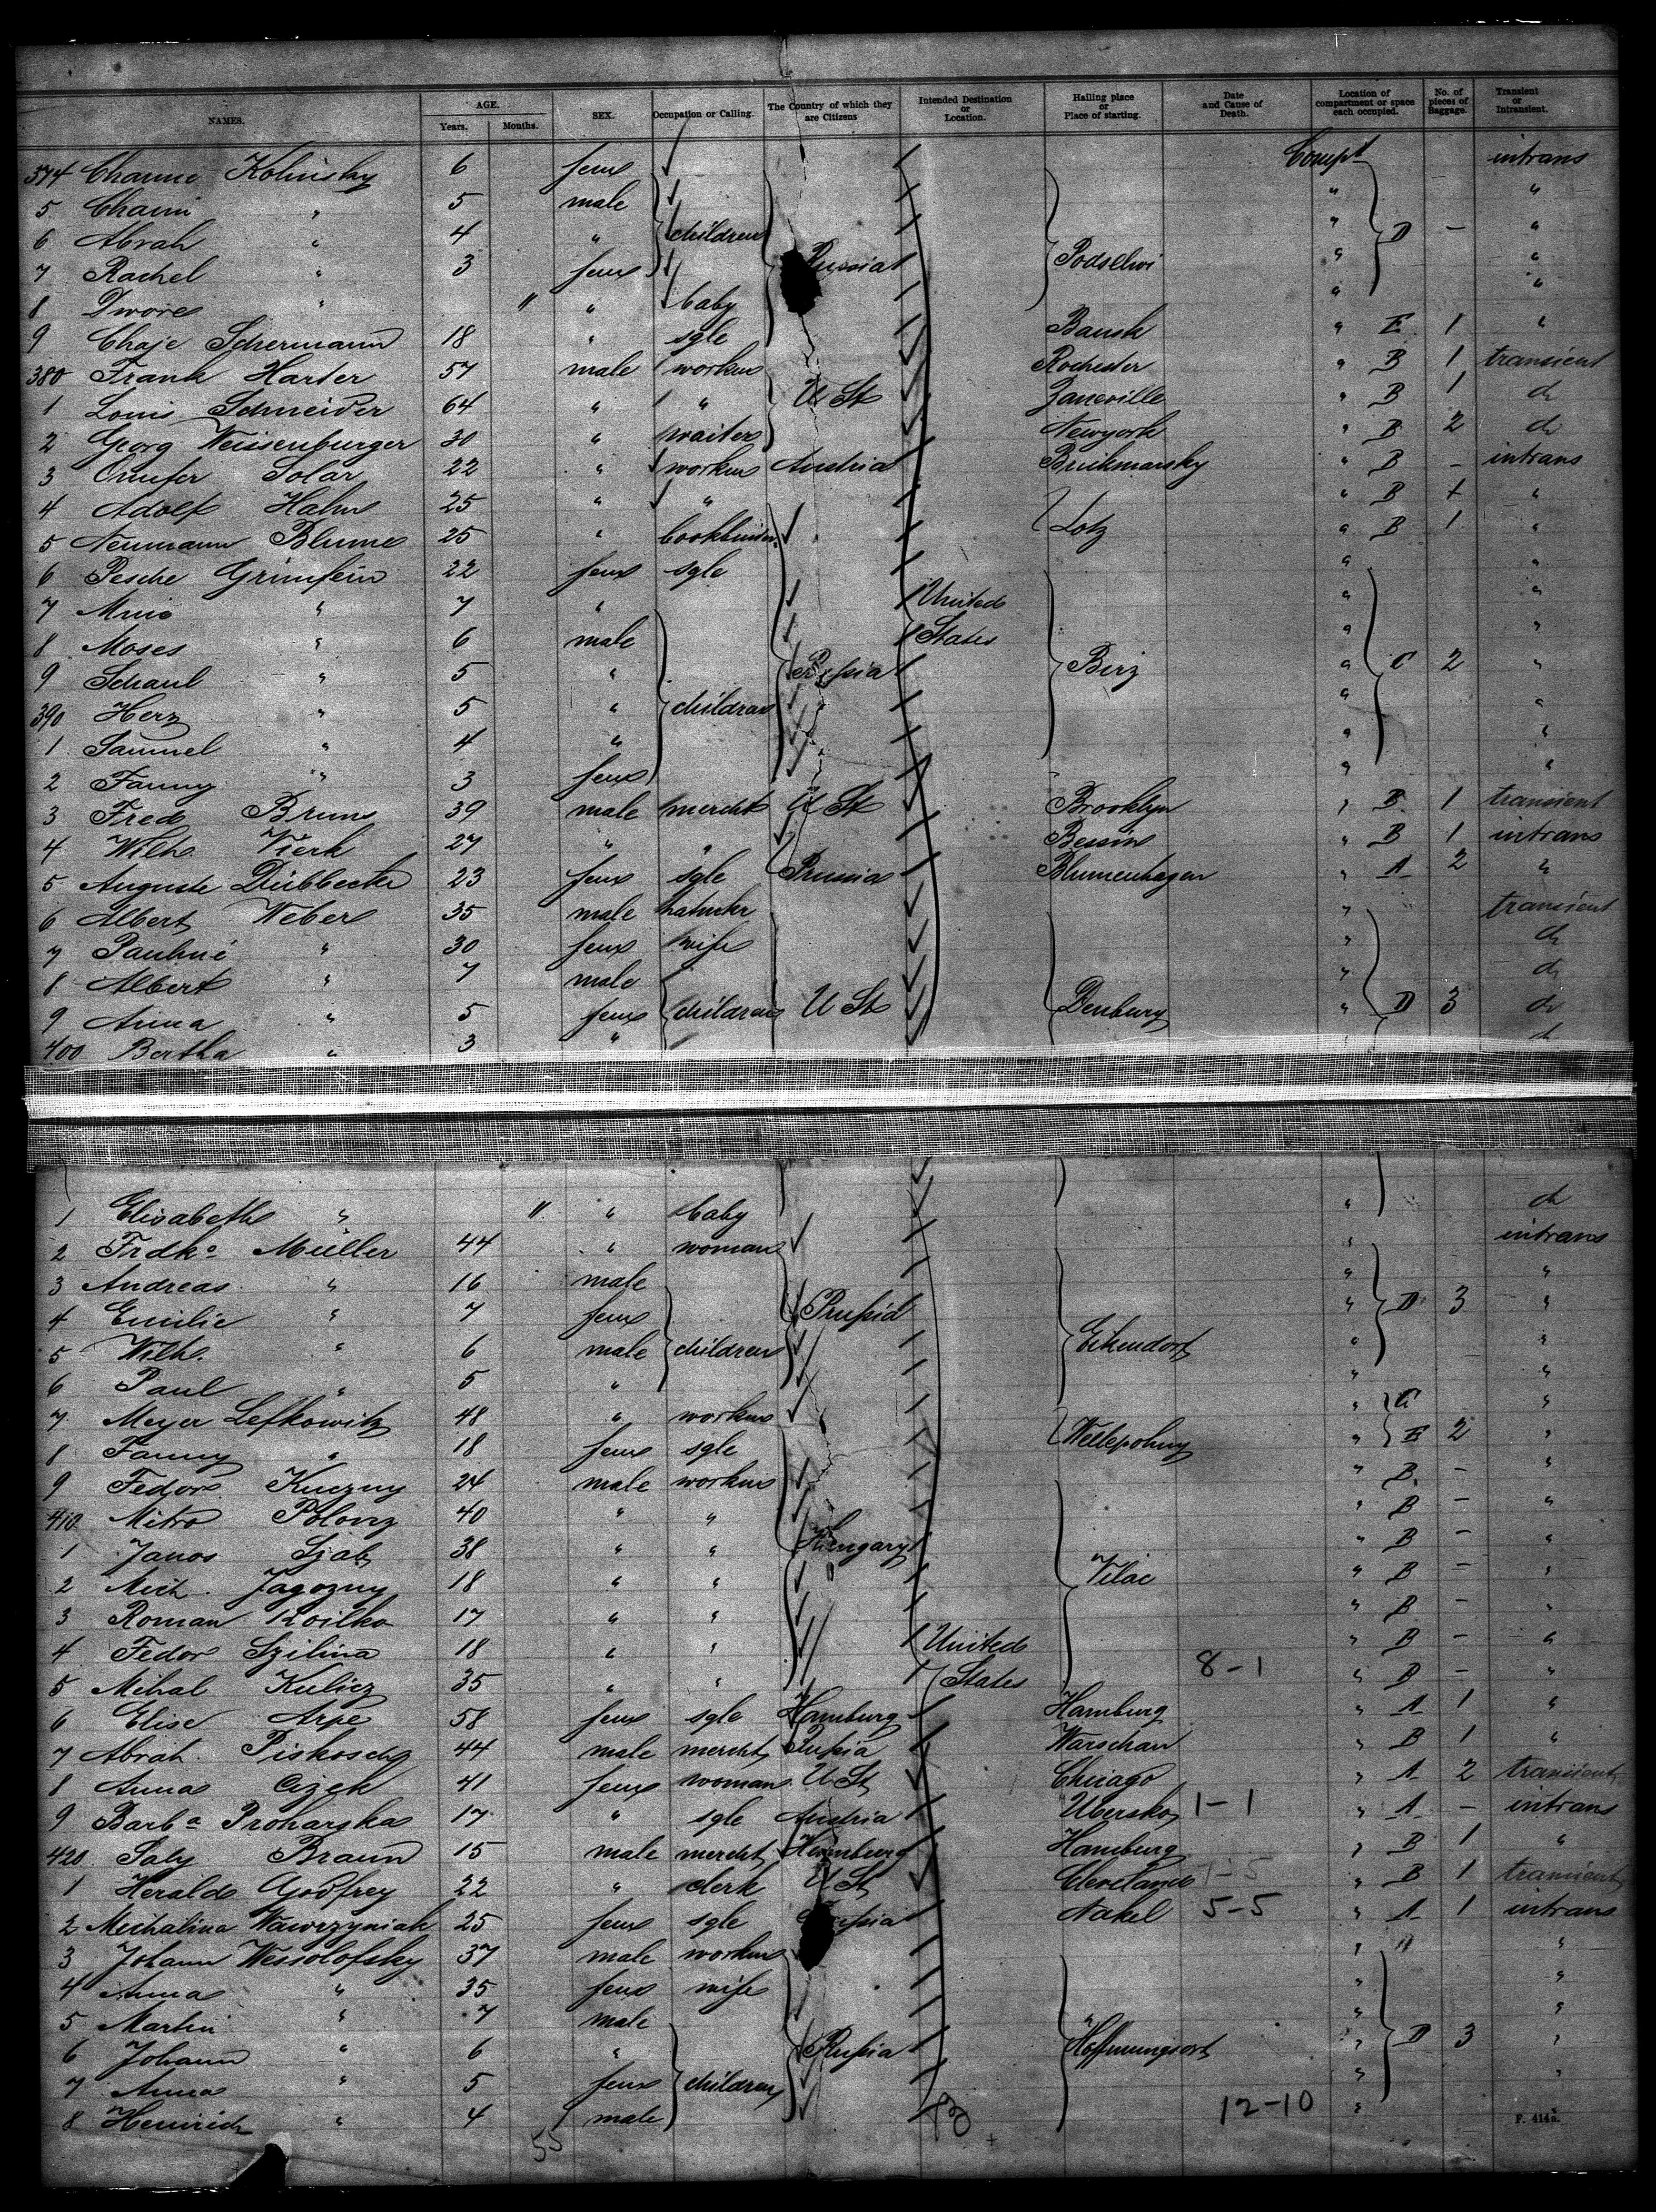 NAMES. AGE. Years. Months. SEX. Occupation or Calling. The Country of which they are Citizens Intended Destination or Location. Hailing place or Place of starting. Date and Cause of Death. Location of compartment or space each occupied. No. of pieces of Baggage. Transient or Intransient.
374 Channe Kolinsky 6 fem Compt intrans
5 Chaim " 5 male " "
6 Abrah " 4 " children " D - "
7 Rachel " 3 fem Russia Podselwi " "
8 Dwore " 11 " baby " "
9 Chaje Schermann 18 " sgle Bausk " E 1 "
380 Frank Harter 57 male worker Rochester " B 1 transient
1 Louis Schneider 64 " " U St Zaneville " B 1 do
2 Georg Weissenburger 30 " waiter Newyork " B 2 do
3 Onufer Solar 22 " worker Austria " B - intrans
4 Adolf Hahn 25 " " " B "
5 Neumann Blume 25 " bookbinder Lotz " B 1 "
6 Pesche Grünfein 22 fem sgle " "
7 " 7 " United " "
8 Moses " 6 male States " "
9 Schaul " 5 " Russia Birz " C 2 "
390 Herz " 5 " children " "
1 Samuel " 4 " " "
2 Fanny " 3 fem " "
3 Fred Bruns 39 male mercht U St Brooklyn " B 1 transient
4 Wilh. Vierk 27 " " Bessin " B 1 intrans
5 Auguste Dübbecke 23 fem sgle Prussia Blumenhagen " A 2 "
6 Albert Weber 35 male " transient
7 Pauline " 30 fem wife " do
8 Albert " 7 male " do
9 Anna " 5 fem children U St Denbury " D 3 do
400 Bertha " 3 " do
1 Elisabeth " 11 " baby " do
2 Frdke Müller 44 " woman " intrans
3 Andreas " 16 male " "
4 Emilie " 7 fem Prussia " D 3 "
5 Wilh. " 6 male children Eikendorf " "
6 Paul " 5 " " "
7 Meyer Lefkowitz 48 " worker " C "
8 Fanny " 18 fem sgle Wellepolny " E 2 "
9 Fedor Kuczny 24 male worker " B - "
410 Mitro Polony 40 " " " B - "
1 Janos Szab 38 " " Hungary " B - "
2 Mich. Jagozny 18 " " Vilac " B - "
3 Roman Koilko 17 " " " B - "
4 Fedor Szilina 18 " " United " B - "
5 Mihal Kulicz 35 " " States 8-1 " B - "
6 Elise Arpe 58 fem sgle Hamburg Hamburg " A 1 "
7 Abrah. Piskosch 44 male mercht Russia Warschau " B 1 "
8 Anna Cizek 41 fem woman U St Chicago " A 2 transient
9 Barba Proharska 17 " sgle Austria Ubersko 1-1 " A - intrans
420 Saly Braun 15 male mercht Hamburg Hamburg " B 1 "
1 Herald Godfrey 22 " clerk U St Cleveland 1-5 " B 1 transient
2 Michalina Wawrzyniak 25 fem sgle Nakel 5-5 " A 1 intrans
3 Johann Wessolofsky 37 male worker " "
4 Anna " 35 fem wife " "
5 Martin " 7 male " "
6 Johann " 6 " Russia Hoffnungsort " D 3 "
7 Anna " 5 fem children " "
8 Heinrich " 4 male 12-10 "
55
F. 414a.